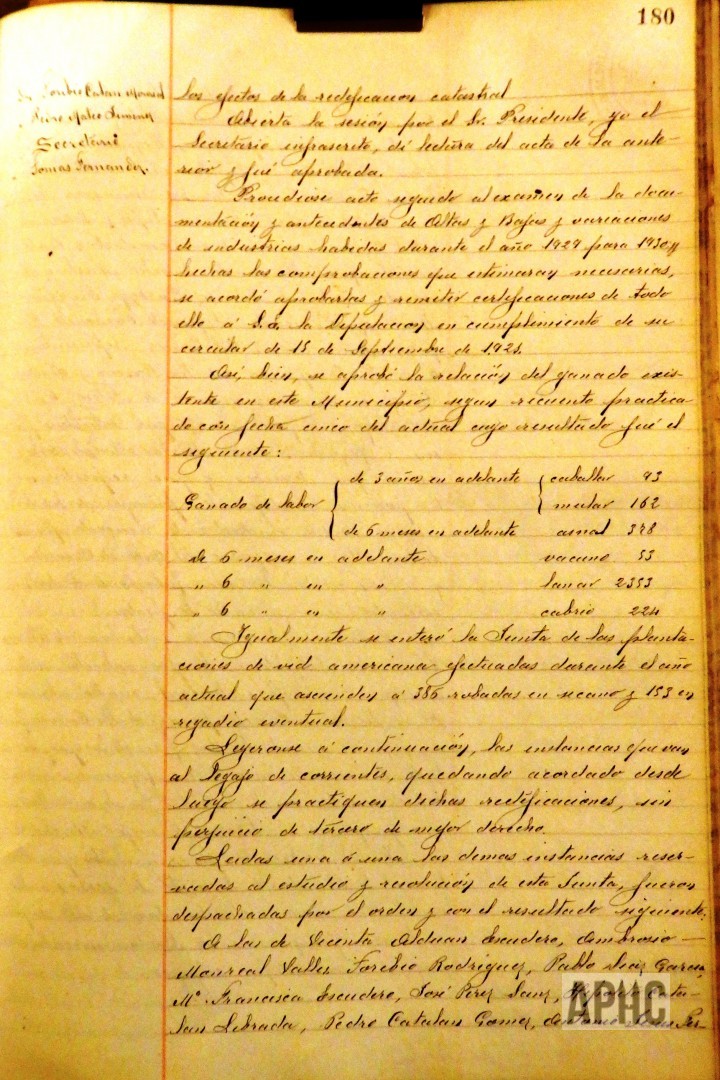 180
Toribio Catalan Monreal
Pedro Mateo Jimenez
Secretario
Tomas Fernandez.
los efectos de la rectificacion catastral
Abierta la sesión por el Sr. Presidente, yo el
Secretario infrascrito, dí lectura del acta de la ante-
rior y fué aprobada.
Procediose acto seguido al examen de la docu-
mentación y antecedentes de Altas y Bajas y variaciones
de industrias habidas durante el año 1929 para 1930 y
hechas las comprobaciones que estimaran necesarias,
se acordó aprobarlas y remitir certificaciones de todo
ello á S.E. la Diputacion en cumplimiento de su
circular de 15 de Septiembre de 192
Asi, bien, se aprobó la relación del ganado exis-
tente en este Municipio, segun recuento practica-
do con fecha cinco del actual cuyo resultado fué el
siguiente:
de 3 años en adelante caballar 93
Ganado de labor mular 162
de 6 meses en adelante asnal 378
de 6 meses en adelante vacuno 53
" 6 " en " lanar 2353
" 6 " en " cabrio 224
Igualmente se enteró la Junta de las planta-
ciones de vid americana efectuadas durante el año
actual que ascienden á 386 robadas en secano y 153 en
regadio eventual.
Leyeronse á continuación, las instancias que van
al legajo de corrientes, quedando acordado desde
luego se practiquen dichas rectificaciones, sin
perjuicio de tercero de mejor derecho.
Leidas una á una las demas instancias reser-
vadas al estudio y resolución de esta Junta, fueron
despachadas por el orden y con el resultado siguiente:
A las de Vicenta Alduan Escudero, Ambrosio
Monreal Valles Toribio Rodriguez, Pablo Garcia
Mª Francisca Escudero, José Perez Sanz, Cata-
lan Librada, Pedro Catalan Gomez,
APHC